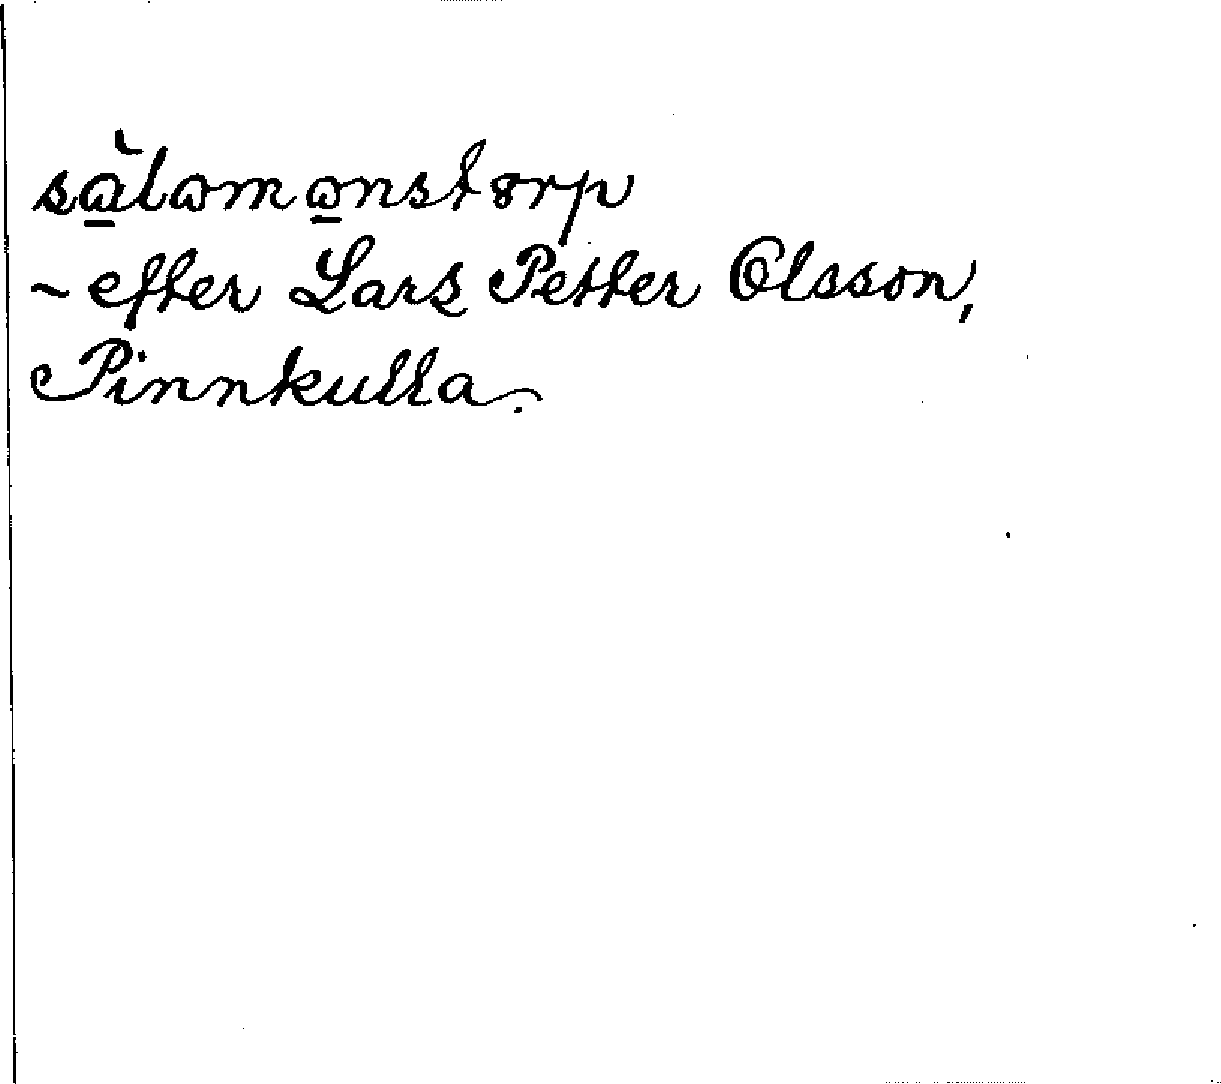 sàlomonstorp
~ efter Lars Petter Olsson,
Pinnkulla.